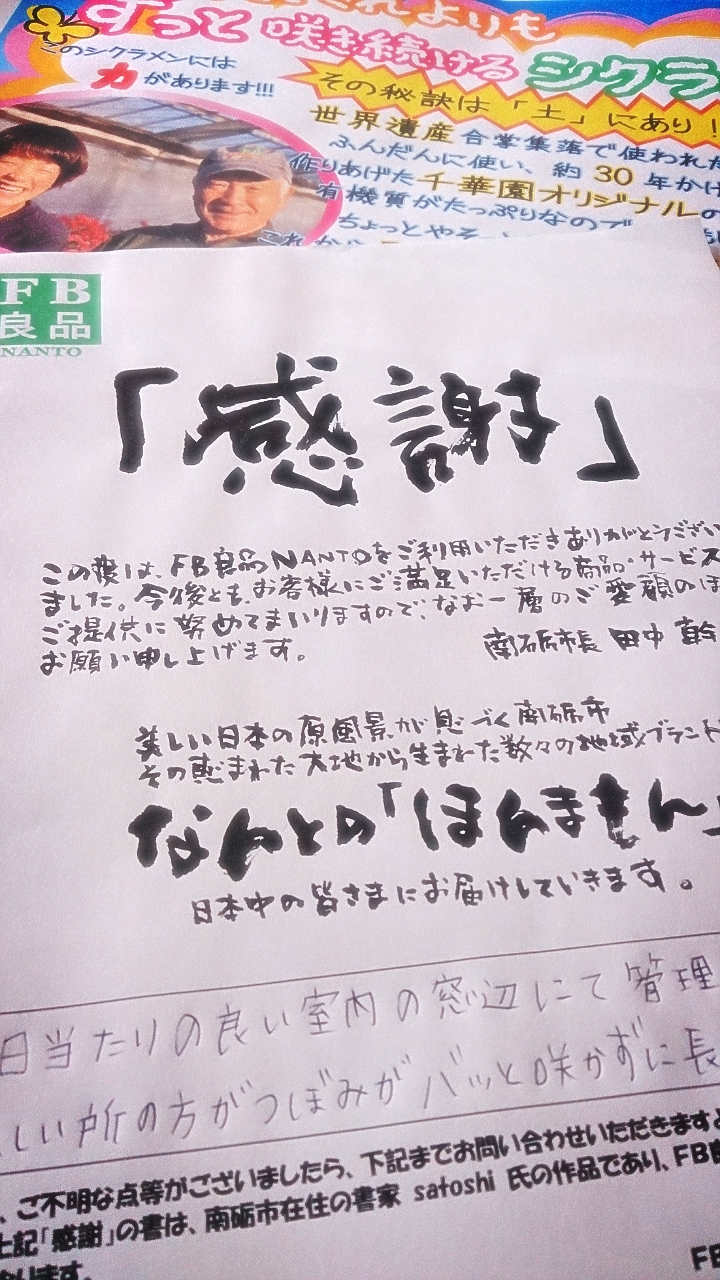 だれよりも
ずっと咲き続けるシクラ
このシクラメンには
力があります!!!
その秘訣は「土」にあり!
世界遺産合掌集落で使われた
ふんだんに使い、約30年かけ
作りあげた千華園オリジナルの
有機質がたっぷりなので
ちょっとやそ
これから
FB
良品
NANTO
「感謝」
この度は、FB良品NANTOをご利用いただきありがとうござい
ました。今後とも、お客様にご満足いただける商品・サービス
ご提供に努めてまいりますので、なお一層のご愛顧のほ
お願い申し上げます。
南砺市長 田中 幹
美しい日本の原風景が息づく南砺市
その恵まれた大地から生まれた数々の地域ブランド
なんとの「ほんまもん」
日本中の皆さまにお届けしていきます。
日当たりの良い室内の窓辺にて管理
しい所の方がつぼみがバッと咲かずに長
、ご不明な点等がございましたら、下記までお問い合わせいただきますよ
上記「感謝」の書は、南砺市在住の書家 satoshi 氏の作品であり、FB良
なります。
FB